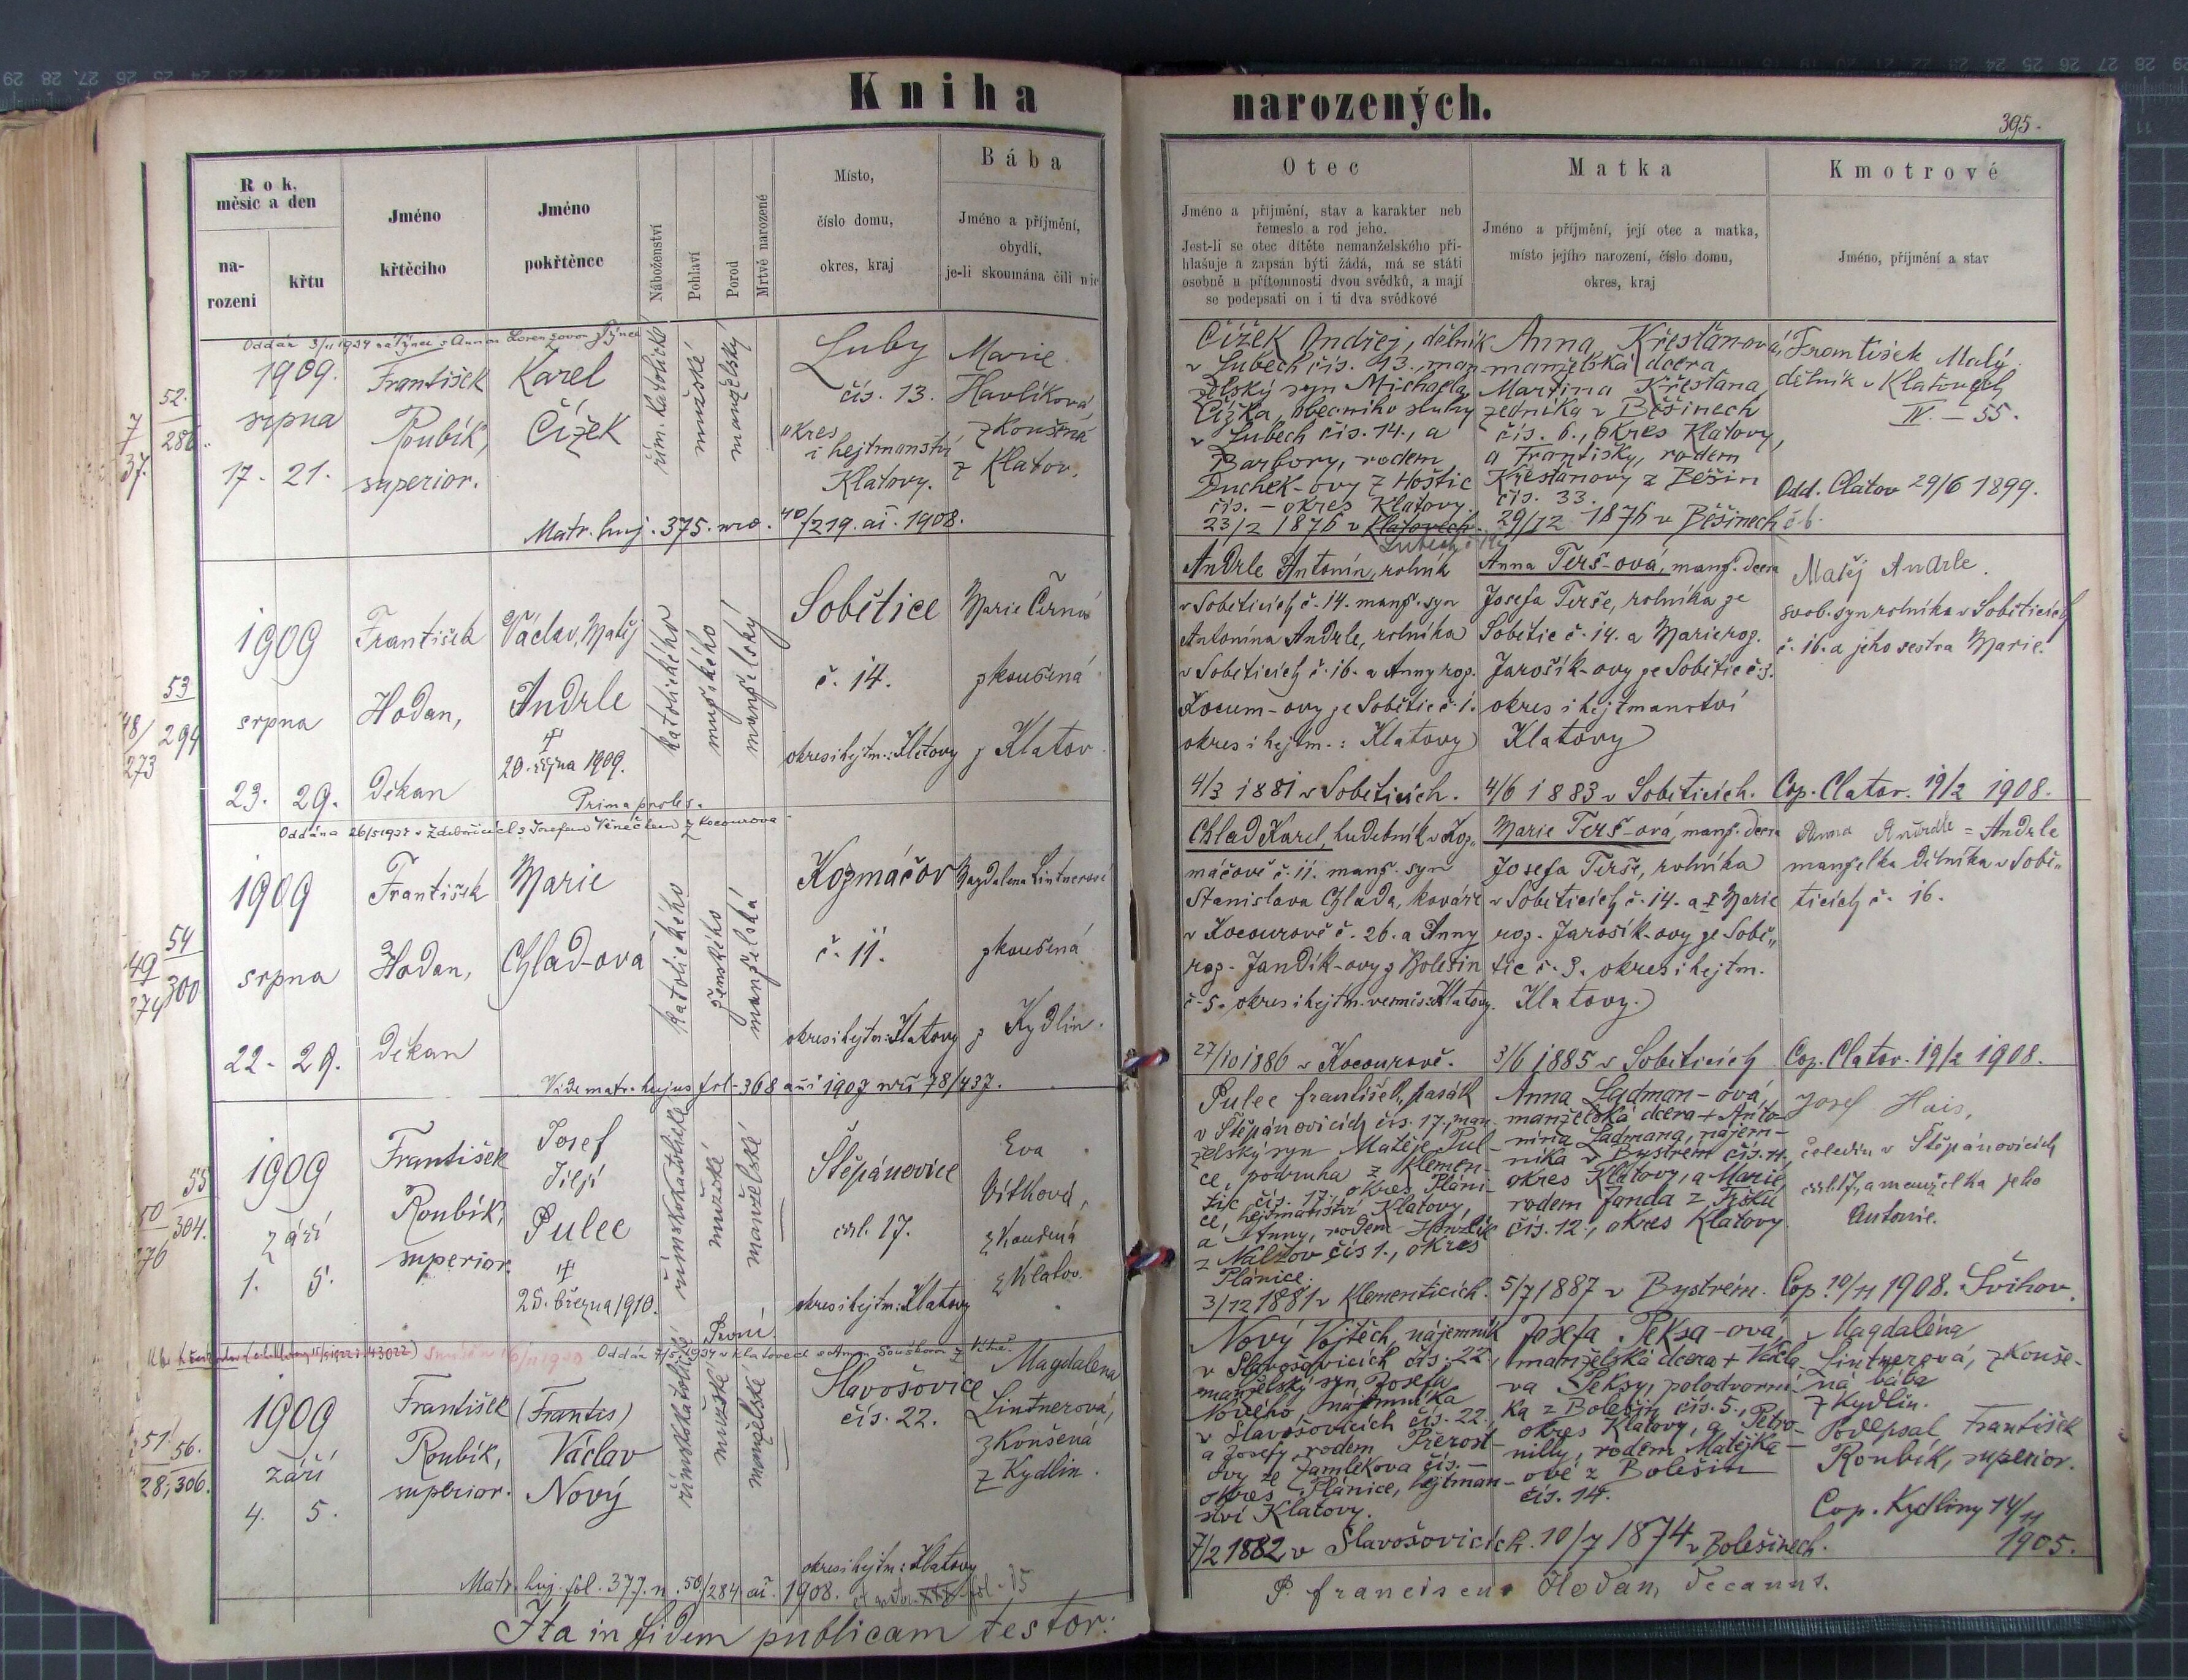 Kniha narozených.
395.
Rok, měsíc a den
narození
křtu
Jméno křtěcího
Jméno pokřtěnce
Náboženství
Pohlaví
Porod
Mrtvě narozené
Místo,
číslo domu,
okres, kraj
Bába
Jméno a příjmení,
obydlí,
je-li skoumána čili nic
Otec
Jméno a příjmení, stav a karakter neb
řemeslo a rod jeho.
Jest-li se otec dítěte nemanželského při-
hlašuje a zapsán býti žádá, má se státi
osobně u přítomnosti dvou svědků, a mají
se podepsati on i ti dva svědkové
Matka
Jméno a příjmení, její otec a matka,
místo jejího narození, číslo domu,
okres, kraj
Kmotrové
Jméno, příjmení a stav
52.
286.
7
37.
1909.
srpna
17. 21.
František
Roubík,
superior.
Karel
Čížek
řím. katolické
mužské
manželský
Luby
čís. 13.
okres
i hejtmanství
Klatovy.
Marie
Havlíková
zkoušená
z Klatov.
Matr. huj. 375. nro. 40/219. ai. 1908.
Čížek Ondřej, dělník
v Lubech čís. 13. man-
želský syn Michaela
Čížka, obecního sluhy
v Lubech čís. 14., a
Barbory, rodem
Duchek-ovy z Hoštic
čís. – okres Klatovy.
23/2 1876 v Klatovech
Anna Křesťanová,
manželská dcera
Martina Křesťana,
zedníka v Běšinech
čís. 6., okres Klatovy,
a Františky, rodem
Křesťanovy z Běšin
čís. 33.
29/12 1876 v Běšinech č 6.
František Malý
dělník v Klatovech
IV. – 55.
Odd. Clatov 29/6 1899.
53
294
48/
273
1909
srpna
23. 29.
František
Hodan,
děkan
Václav, Matěj
Andrle
20. října 1909.
Prima proles.
katolického
mužského
manželský
Sobětice
č. 14.
okres i hejtm.: Klatovy
Marie Černá
zkoušená
z Klatov
Andrle Antonín, rolník
v Soběticích č. 14. manž. syn
Antonína Andrle, rolníka
v Soběticích č. 16. a Anny roz.
Kocum-ovy ze Sobětic č. 1.
okres i hejtm.: Klatovy
4/3 1881 v Soběticích.
Anna Terš-ová, manž. dcera
Josefa Terše, rolníka ze
Sobětic č. 14. a Marie roz.
Jarošík-ovy ze Sobětic č. 3.
okres i hejtmanství
Klatovy
4/6 1883 v Soběticích.
Matěj Andrle
svob. syn rolníka v Soběticích
č. 16. a jeho sestra Marie.
Cop. Clatov. 19/2 1908.
54
300
49
274
1909
srpna
22. 29.
František
Hodan,
děkan
Marie
Chlad-ová
katolického
ženského
manželská
Kozmáčov
č. 11.
okres i hejtm.: Klatovy
Magdalena Lintnerová
zkoušená
z Kydlin.
Vide matr. hujus fol. 368 ani 1907 nri 78/437.
Chlad Karel, hudebník v Koz-
máčově č. 11. manž. syn
Stanislava Chlada, kováře
v Kocourově č. 26. a Anny
roz. Jandík-ovy z Bolešin
č. 5. okres i hejtm. Klatovy.
27/10 1886 v Kocourově.
Marie Terš-ová, manž. dcera
Josefa Terše, rolníka
v Soběticích č. 14. a Marie
roz. Jarošík-ovy ze Sobě-
tic č. 3. okres i hejtm.
Klatovy.
3/6 1885 v Soběticích
Anna Andrle
manželka dělníka v Sobě-
ticích č. 16.
Cop. Clatov. 19/2 1908.
55
304.
50
276
1909
září
1. 5.
František
Roubík,
superior.
Josef
Jiljí
Pulec
25. března 1910.
římskokatolické
mužské
manželské
Štěpánovice
čísl. 17.
okres i hejtm.: Klatovy
Eva
Vítková,
zkoušená
z Klatov.
Pulec František, pasák
v Štěpánovicích čís. 17, man-
želský syn Matěje Pul-
ce, podruha z Klemen-
tic čís. 17. okres Pláni-
ce, hejtmanství Klatovy,
a Anny, rodem
z Nalžov čís 1., okres
Plánice.
3/12 1881 v Klementicích.
Anna Ladman-ová,
manželská dcera + Anto-
nína Ladmana, nájem-
níka v Bystrém čís. 11.
okres Klatovy, a Marie,
rodem Janda z
čís. 12., okres Klatovy.
5/7 1887 v Bystrém.
Josef Hais,
čeledín v Štěpánovicích
čísl. 17., a manželka jeho
Antonie.
Cop. 10/11 1908. Švihov.
56.
306.
51.
28,
1909
září
4. 5.
František
Roubík,
superior.
Václav
Nový
římskokatolické
mužské
manželské
První
Slavošovice
čís. 22.
okres i hejtm: Klatovy
Magdalena
Lintnerová,
zkoušená
z Kydlin.
Matr. huj. fol. 377. n. 50/284 ai. 1908.
Nový Vojtěch, nájemník
v Slavošovicích čís. 22,
manželský syn Josefa
Nového, nájemníka
v Slavošovicích čís. 22.
a Josefy, rodem Přerost-
ovy ze Zamlekova čís. –
okres Plánice, hejtman-
ství Klatovy.
7/2 1882 v Slavošovicích.
Josefa Peksa-ová,
manželská dcera + Václa-
va Peksy, polodvorní-
ka z Bolešin čís. 5.,
okres Klatovy, a Petro-
nilly, rodem Matějka-
ové z Bolešin
čís. 14.
10/7 1874 v Bolešinech.
Magdaléna
Lintnerová, zkouše-
ná bába
z Kydlin.
Podepsal František
Roubík, superior.
Cop. Kydliny 14/11
1905.
Ita in fidem publicam testor:
P. Franciscus Hodan, decanus.